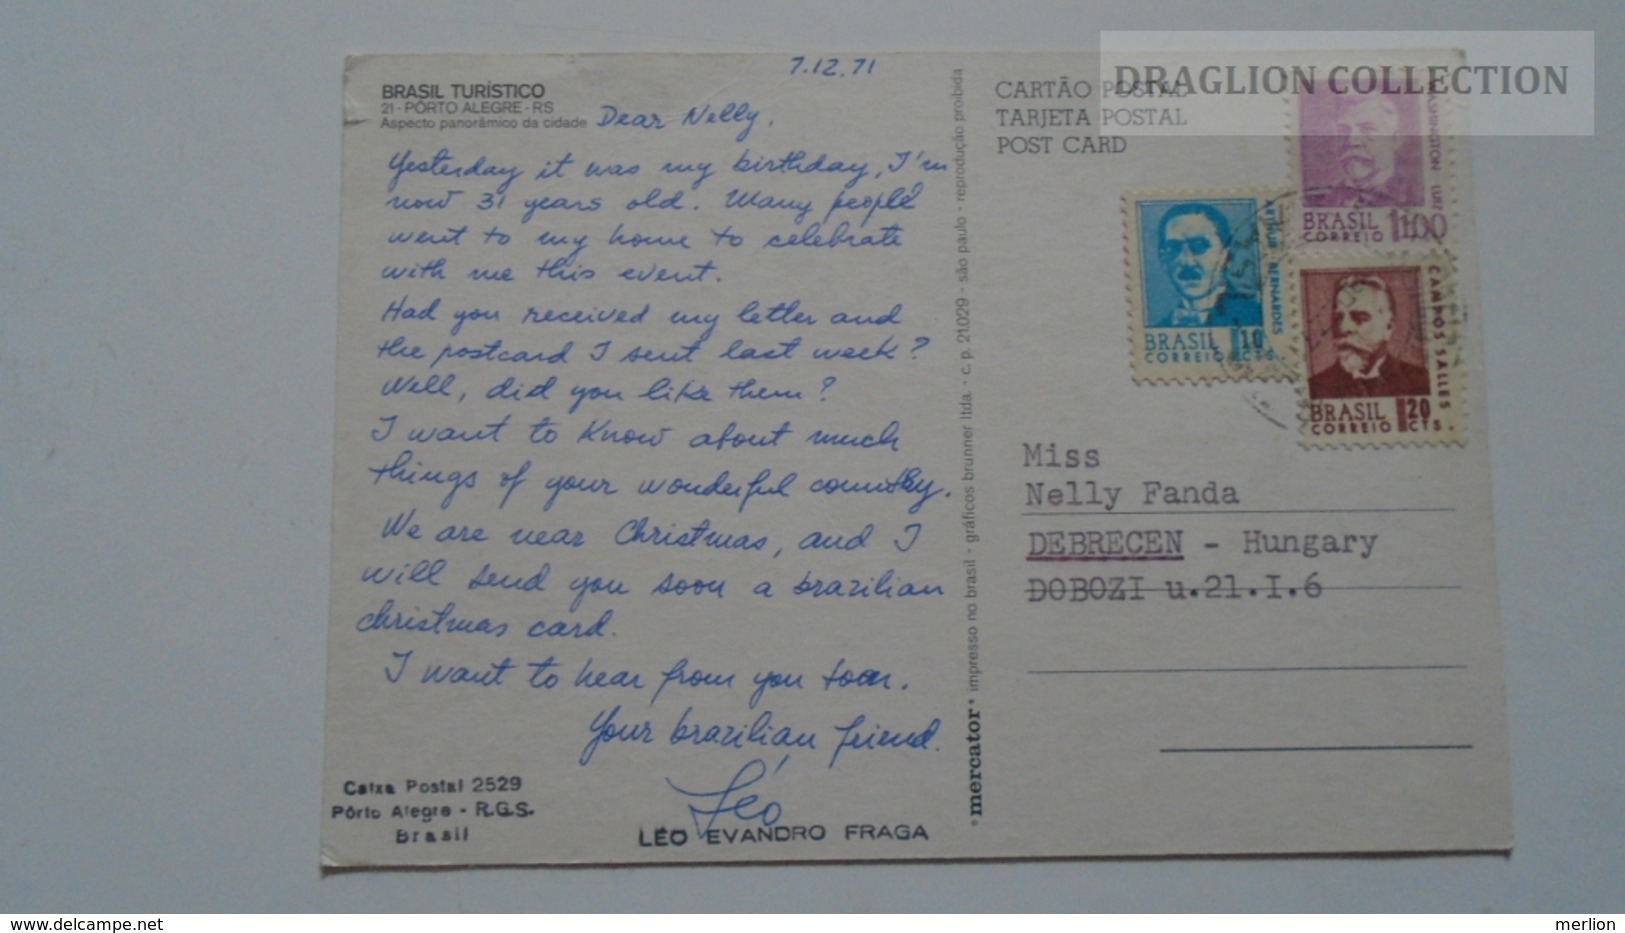 7.12.71
BRASIL TURÍSTICO
21 - PÔRTO ALEGRE - RS
Aspecto panorâmico da cidade
Dear Nelly,
Yesterday it was my birthday, I'm
now 31 years old. Many people
went to my home to celebrate
with me this event.
Had you received my letter and
the postcard I sent last week?
Well, did you like them?
I want to know about much
things of your wonderful country.
We are near Christmas, and I
will send you soon a brazilian
christmas card.
I want to hear from you soon.
Your brazilian friend.
Léo
LÉO EVANDRO FRAGA
Caixa Postal 2529
Pôrto Alegre - R.G.S.
Brasil
mercator • impresso no brasil - gráficos brunner ltda. - c. p. 21.029 - são paulo - reprodução proibida
CARTÃO POSTAL
TARJETA POSTAL
POST CARD
DRAGLION COLLECTION
WASHINGTON LUIZ
BRASIL 1,00
CORREIO
ARTHUR BERNARDES
BRASIL 10
CORREIO CTS.
CAMPOS SALLES
BRASIL 20
CORREIO CTS.
Miss
Nelly Fanda
DEBRECEN - Hungary
DOBOZI u.21.I.6
www.delcampe.net
merlion